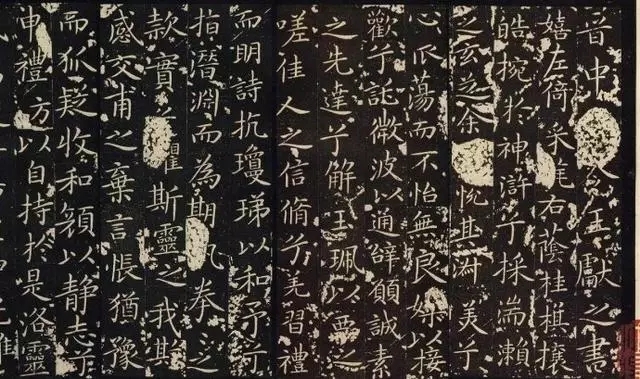 晉中令王獻之書
嬉左倚采旄右蔭桂旗攘
皓捥於神滸兮採湍瀨
之玄芝余悅其淑美兮
心振蕩而不怡無良媒以接
歡兮託微波以通辭願誠素
之先達兮解玉珮以要之
嗟佳人之信脩兮羌習禮
而明詩抗瓊珶以和予兮
指潛淵而為期執拳之
款實兮懼斯靈之我欺
感交甫之棄言悵猶豫
而狐疑收和顏以静志兮
申禮防以自持於是洛靈